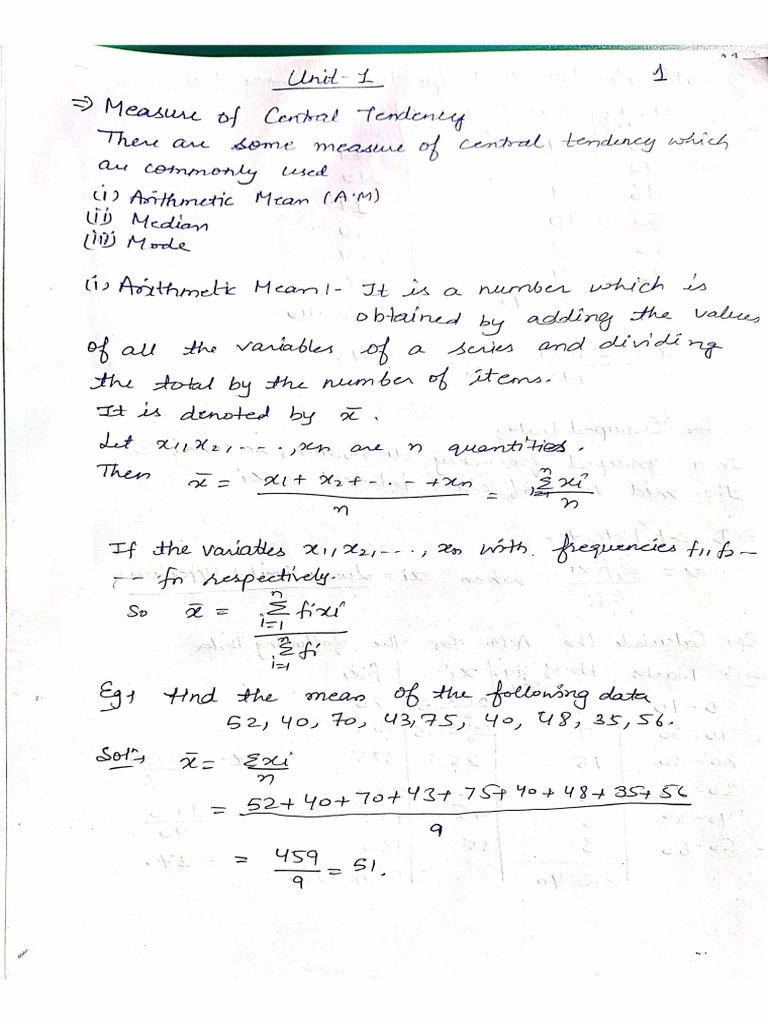 Unit-1
1
⇒ Measure of Central Tendency
There are some measure of central tendency which
are commonly used
(i) Arithmetic Mean (A.M)
(ii) Median
(iii) Mode
(i) Arithmetic Mean :- It is a number which is
obtained by adding the values
of all the variables of a series and dividing
the total by the number of items.
It is denoted by x̄.
Let x1, x2, ----, xn are n quantities.
Then x̄ = (x1 + x2 + -..- + xn)/n = Σ_{i=1}^{n} xi / n
If the variables x1, x2, ---., xn with frequencies f1, f2 -
-- fn respectively.
So x̄ = Σ_{i=1}^{n} fixi / Σ_{i=1}^{n} fi
Eg → find the mean of the following data
52, 40, 70, 43, 75, 40, 48, 35, 56.
Solⁿ→ x̄ = Σxi / n
= (52 + 40 + 70 + 43 + 75 + 40 + 48 + 35 + 56) / 9
= 459/9 = 51.